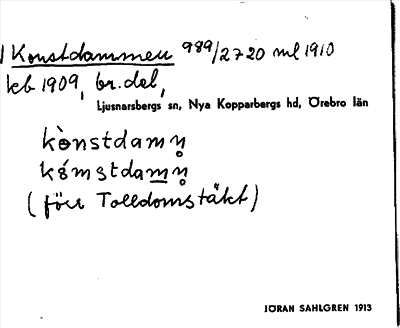 Konstdammen 989/2720 ml 1910
kb 1909, br. del,
Ljusnarsbergs sn, Nya Kopparbergs hd, Örebro län
kònstdamn̥
kómstdamn̥
(förr Tolldomstäkt)
JÖRAN SAHLGREN 1913